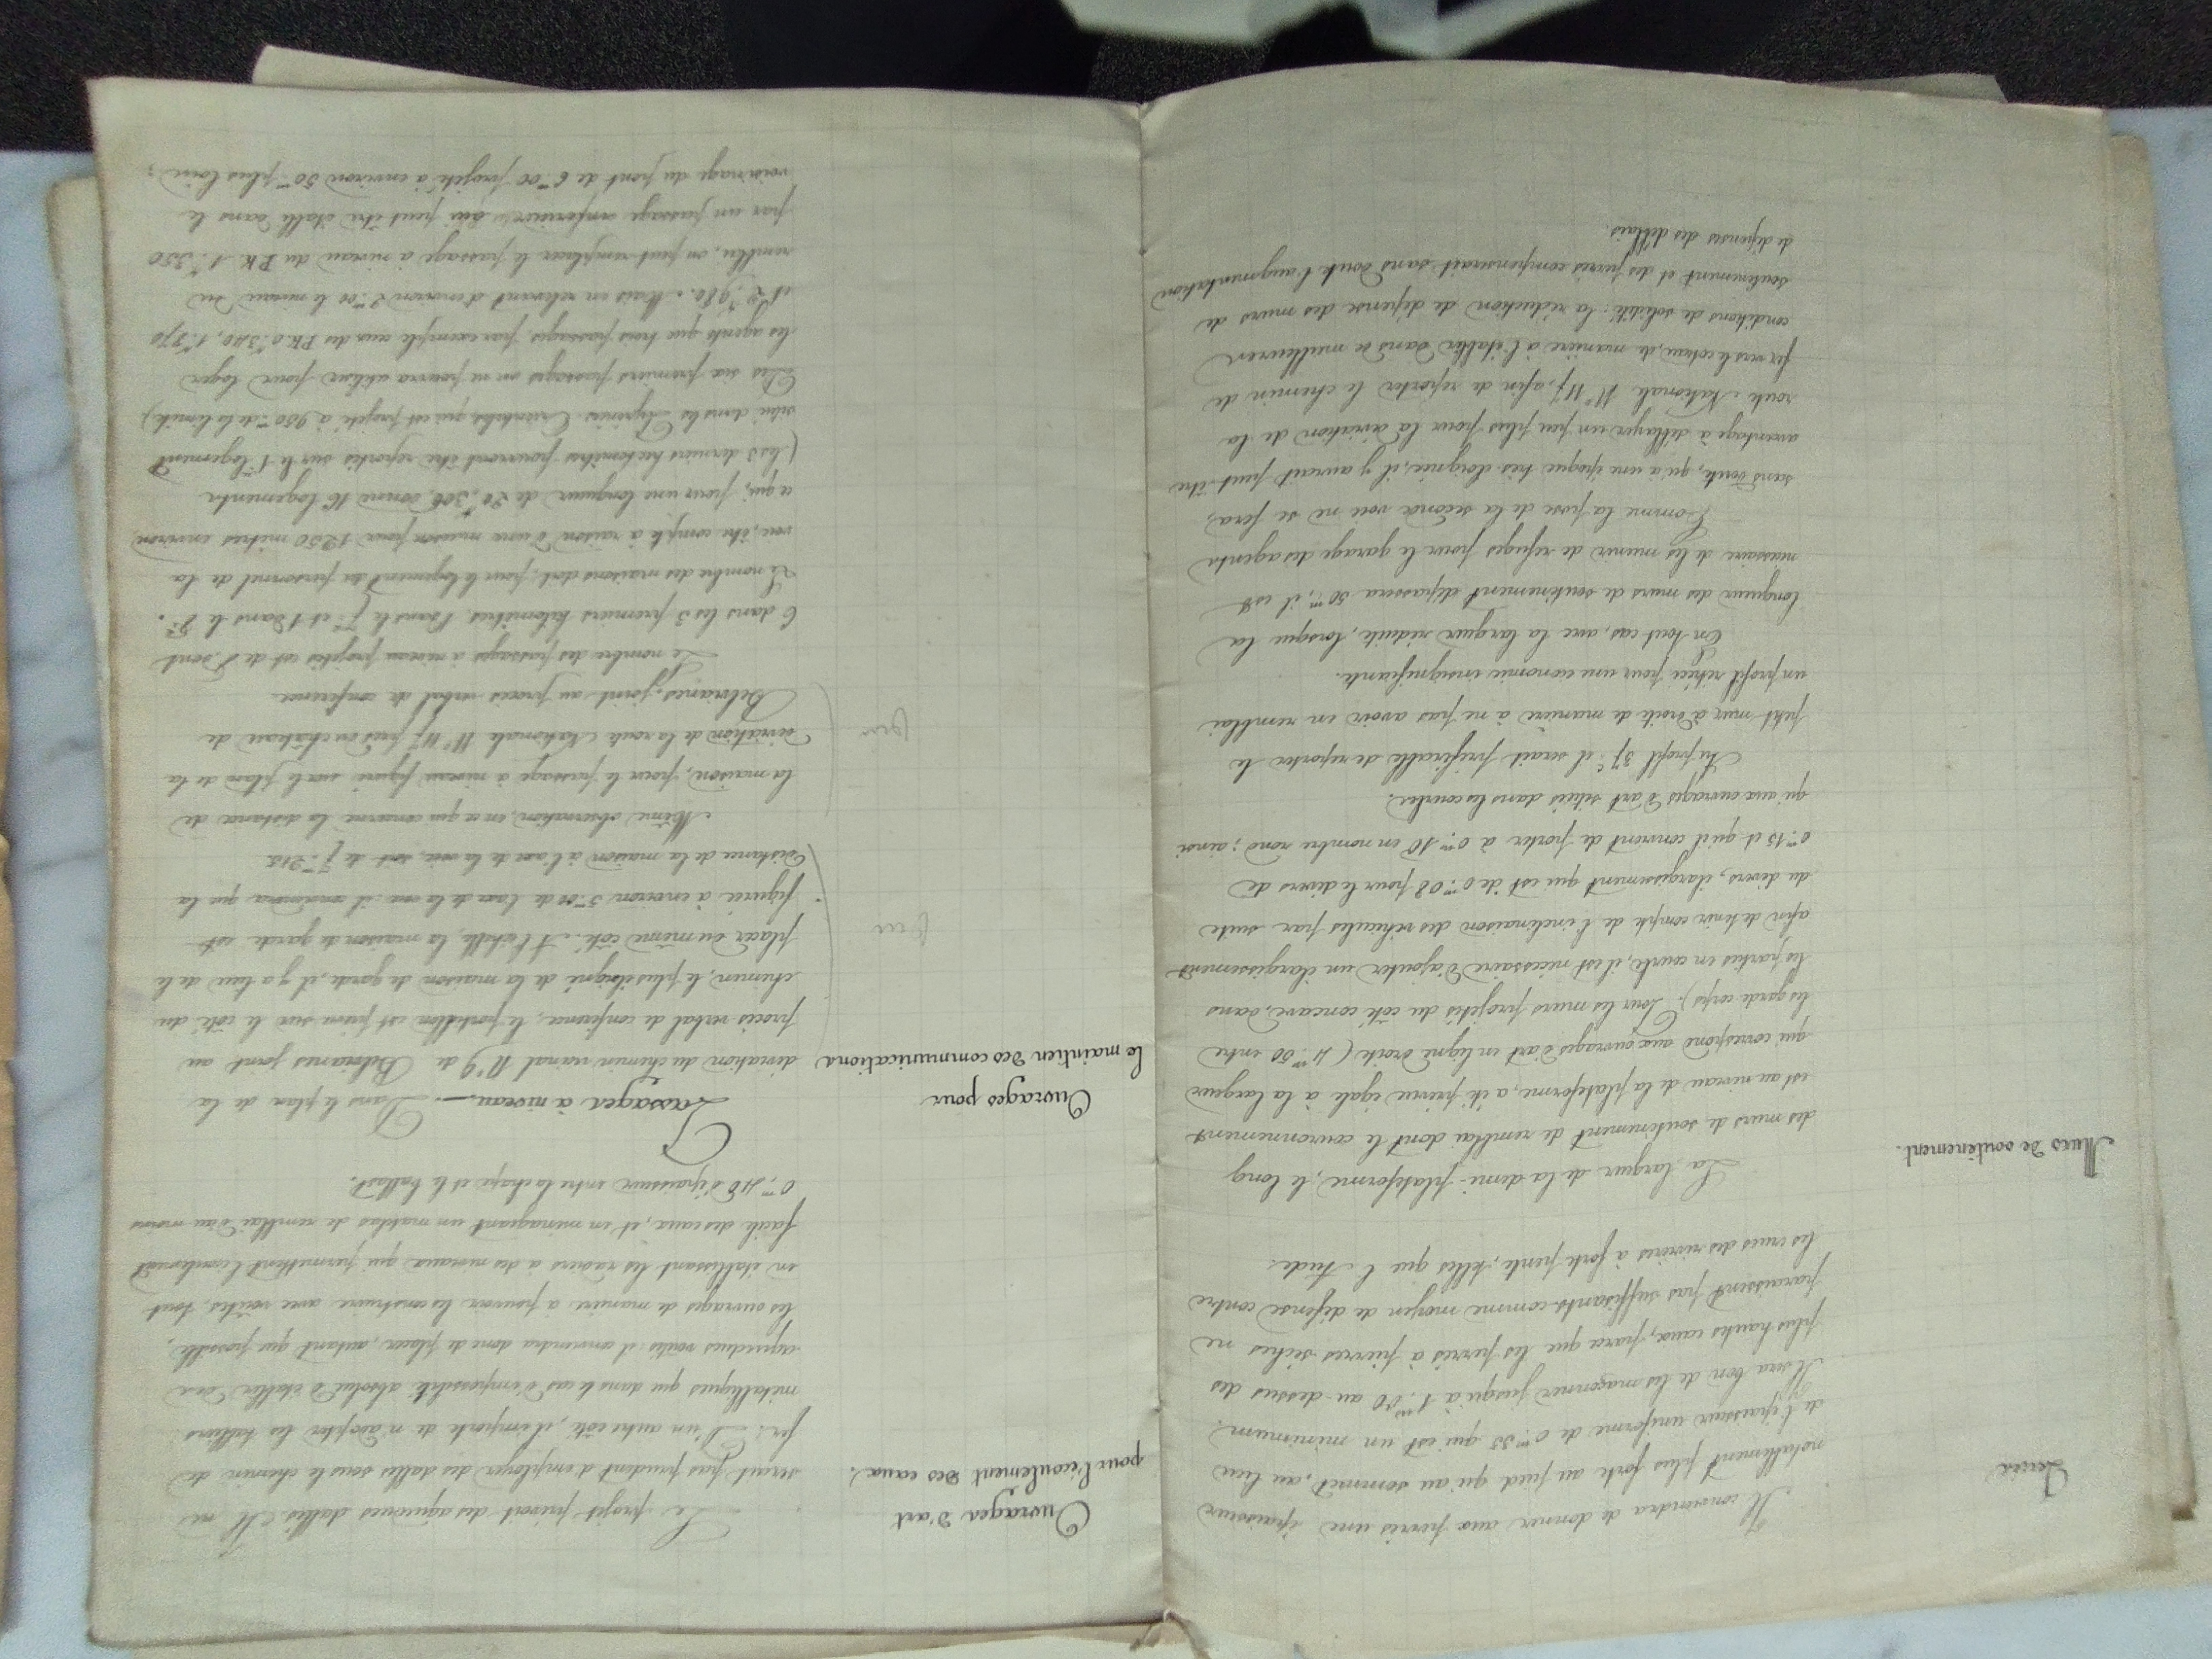 Perrés
Il conviendra de donner aux perrés une épaisseur
notablement plus forte au pied qu'au sommet, au lieu
de l'épaisseur uniforme de 0.m35 qui est un minimum.
Il sera bon de les maçonner jusqu'à 1.m00 au-dessus des
plus hautes eaux, parce que les perrés à pierres sèches ne
paraissent pas suffisants comme moyen de défense contre
les crues des rivières à forte pente, telles que l'Aude.
Murs de soutènement.
La largeur de la demi-plateforme, le long
des murs de soutènement de remblai dont le couronnement
est au niveau de la plateforme, a été prévue égale à la largeur
qui correspond aux ouvrages d'art en ligne droite (4.m50 entre
les garde-corps). Pour les murs projetés du côté concave, dans
les parties en courbe, il est nécessaire d'ajouter un élargissement
afin de tenir compte de l'inclinaison des véhicules par suite
du dévers, élargissement qui est de 0.m08 pour le dévers de
0.m15 et qu'il convient de porter à 0.m10 en nombre rond ; ainsi
qu'aux ouvrages d'art situés dans les courbes.
Au profil 37c il serait préférable de reporter le
petit mur à droite de manière à ne pas avoir en remblai
un profil rétréci pour une économie insignifiante.
En tout cas, avec la largeur réduite, lorsque la
longueur des murs de soutènement dépassera 50m, il est
nécessaire de les munir de refuges pour le garage des agents
Comme la pose de la seconde voie ne se fera,
sans doute, qu'à une époque très-éloignée, il y aurait peut-être
avantage à déblayer un peu plus pour la déviation de la
route Nationale N° 117, afin de reporter le chemin de
fer vers le coteau, de manière à l'établir dans de meilleures
conditions de solidité : la réduction de dépense des murs de
soutènement et des perrés compenserait sans doute l'augmentation
de dépenses des déblais.
Ouvrages d'art
pour l'écoulement des eaux.
Le projet prévoit des aqueducs dallés. Il ne
serait pas prudent d'employer des dalles sous le chemin de
fer. D'un autre côté, il importe de n'adopter les tabliers
métalliques que dans le cas d'impossibilité absolue d'établir des
aqueducs voûtés : il conviendra donc de placer, autant que possible,
les ouvrages de manière à pouvoir les construire avec voûtes, tout
en établissant les radiers à des niveaux qui permettent l'écoulement
facile des eaux, et en ménageant un matelas de remblai d'au moins
0.m40 d'épaisseur entre la chape et le ballast.
Ouvrages pour
le maintien des communications
Passages à niveau. — Dans le plan de la
déviation du chemin vicinal N° 9 de Belvianes joint au
procès-verbal de conférence, le portillon est prévu sur le côté du
chemin, le plus éloigné de la maison de garde, il y a lieu de le
placer du même côté. A l'échelle, la maison de garde est
figurée à environ 5.m00 de l'axe de la voie : il conviendra que la
distance de la maison à l'axe de la voie, soit de 7.m215
oui
Même observation, en ce qui concerne la distance de
la maison, pour le passage à niveau figuré sur le plan de la
déviation de la route Nationale N° 117 près du château de
Belvianes, joint au procès verbal de conférence.
oui
Le nombre des passages à niveau projetés est de 8, dont
6 dans les 3 premiers kilomètres, 1 dans le 7e et 1 dans le 8e.
Le nombre des maisons doit, pour le logement du personnel de la
voie, être compté à raison d'une maison pour 1250 mètres environ
ce qui, pour une longueur de 20.k306, donne 16 logements
(les 3 derniers hectomètres pourront être reportés sur le 1er logement
situé dans les Pyrénées-Orientales, qui est projeté à 950m de la limite).
Des six premiers passages on ne pourra utiliser pour loger
les agents que trois passages, par exemple ceux des P.K. 0.k340, 1.k870
et 2.k980. Mais en relevant d'environ 2.m00 le niveau du
remblai, on peut remplacer le passage à niveau du P.K. 1.k350
par un passage inférieur qui peut être établi dans le
voisinage du pont de 6.m00 projeté à environ 50m plus loin ;